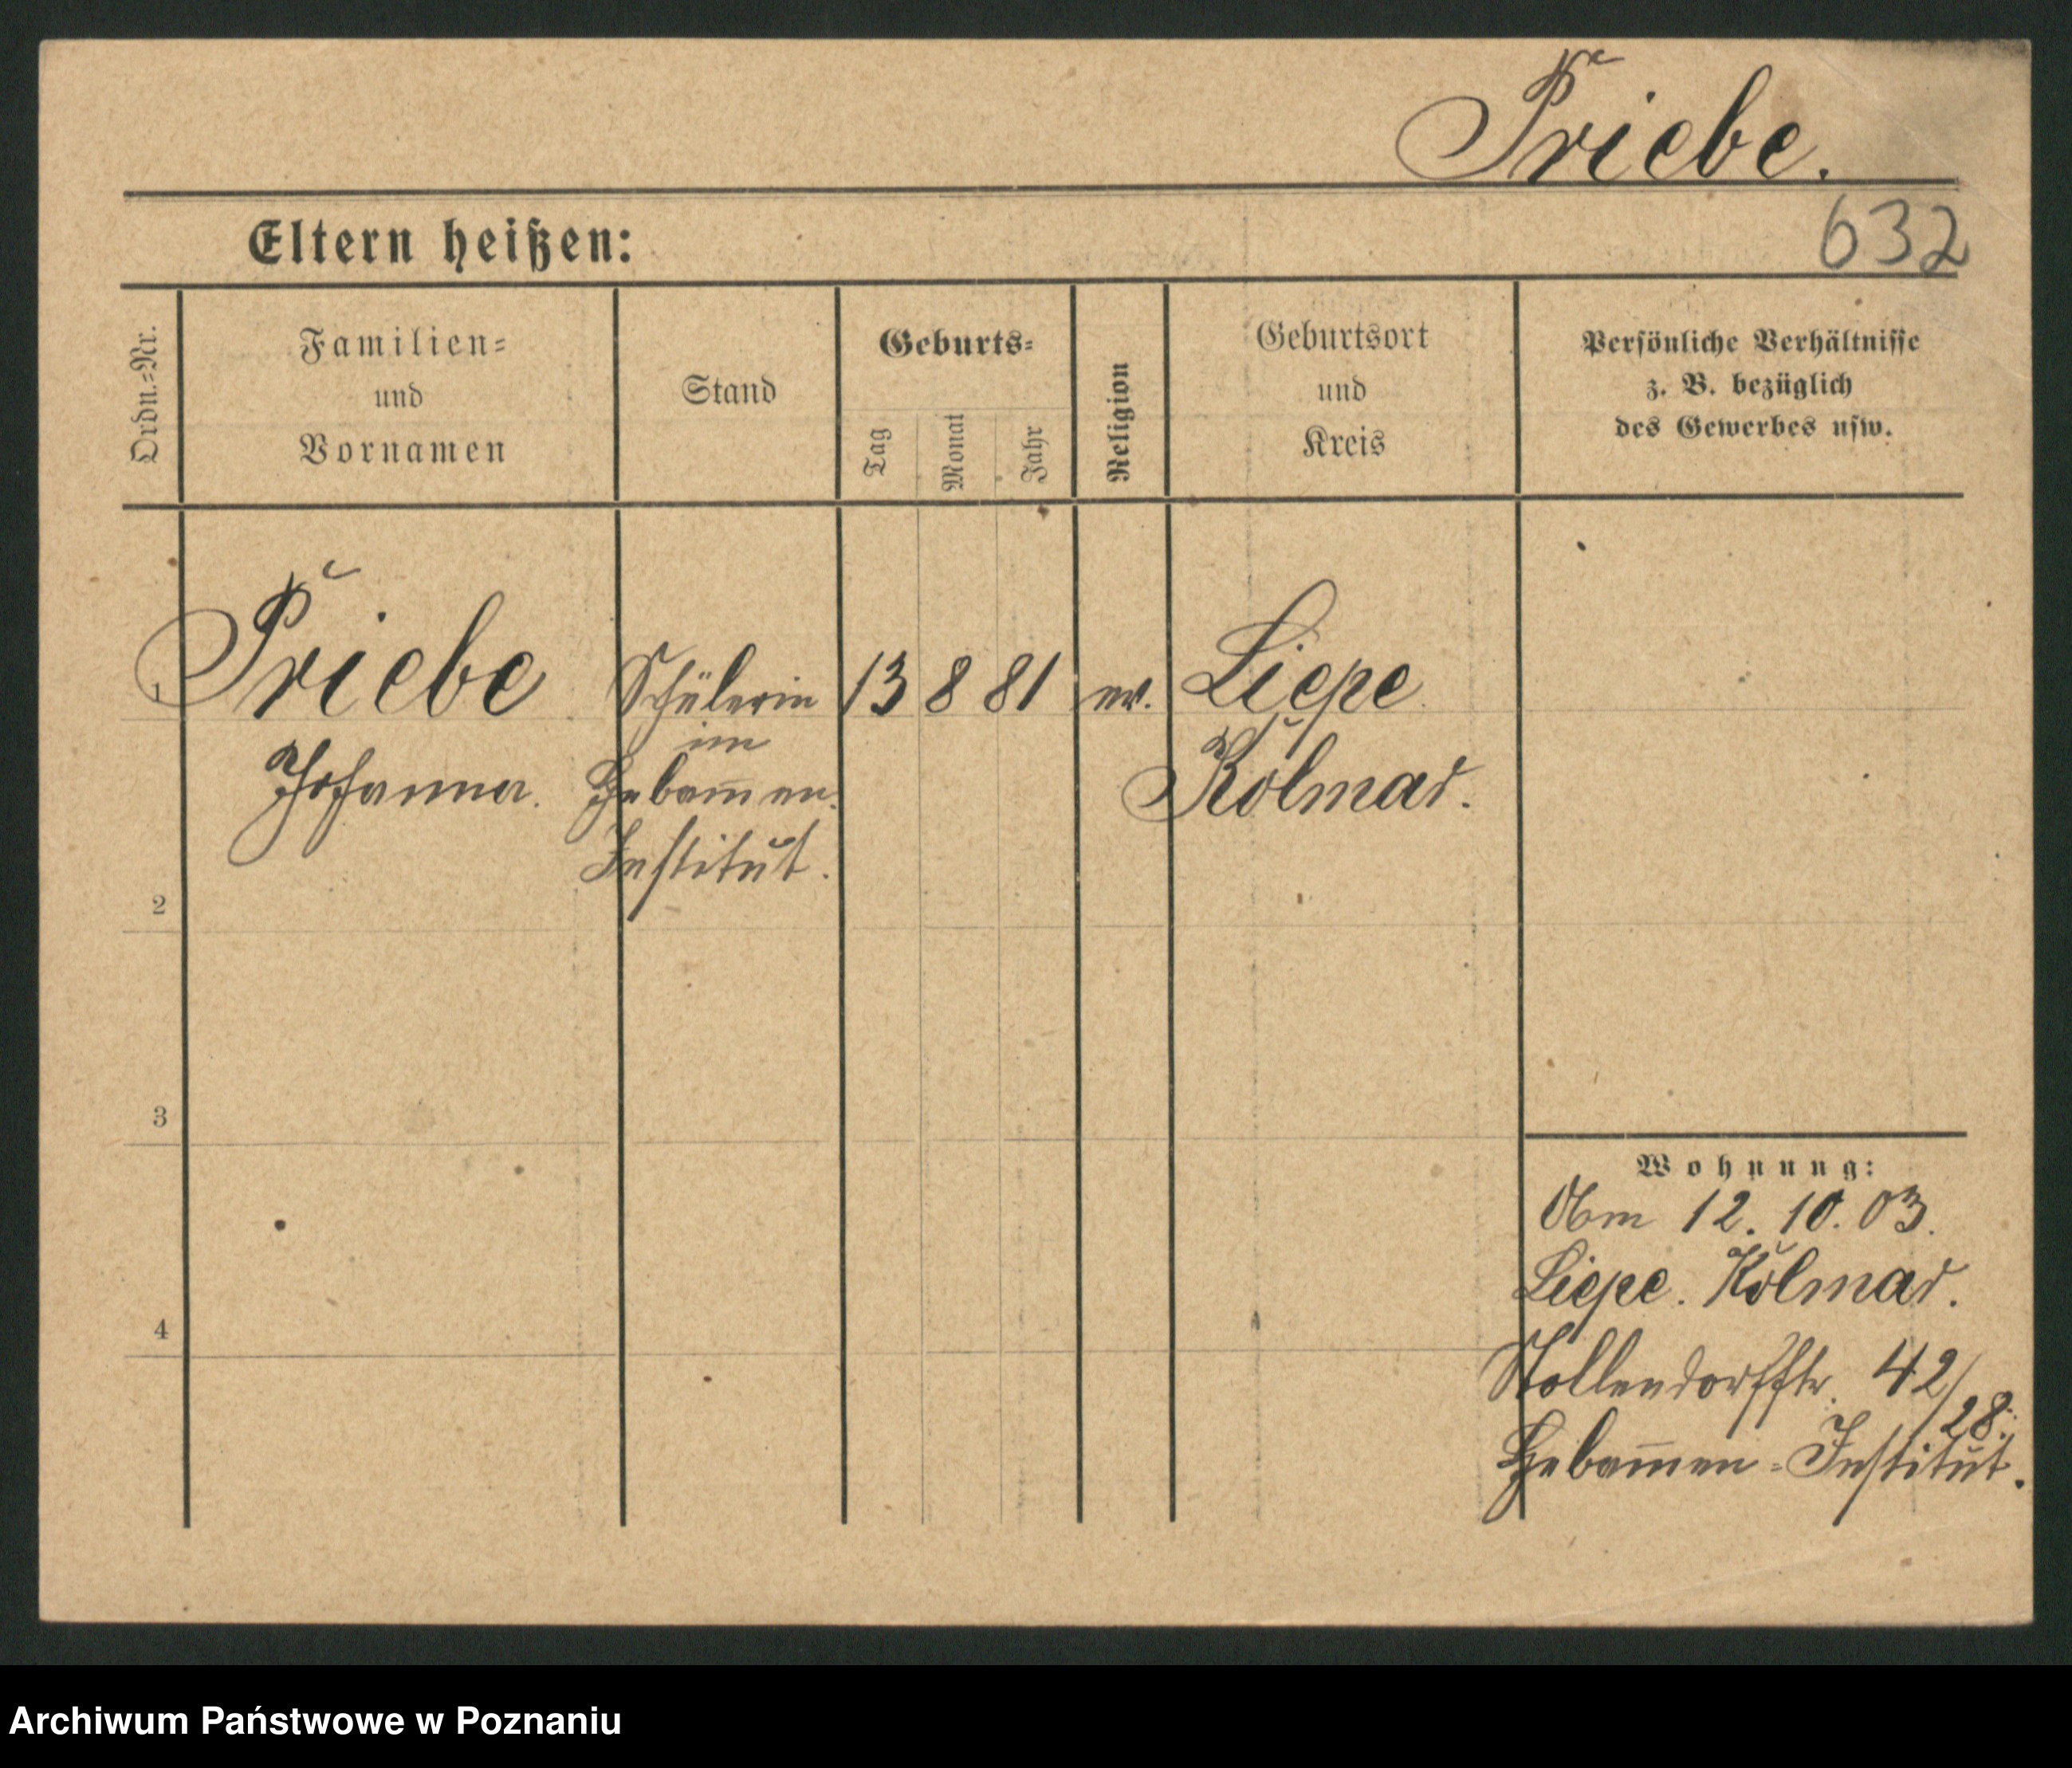 Priebe.
Eltern heißen:
632
Ordn.=Nr.
Familien=
und
Vornamen
Stand
Geburts=
Tag
Monat
Jahr
Religion
Geburtsort
und
Kreis
Persönliche Verhältnisse
z. B. bezüglich
des Gewerbes usw.
1 Priebe Schülerin 13 8 81 ev. Liepe
Johanna. im Kolmar.
Hebam̄en-
Institut.
2
3
4
Wohnung:
12. 10. 03.
Liepe. Kolmar.
42/28.
Hebam̄en-Institut.
Archiwum Państwowe w Poznaniu